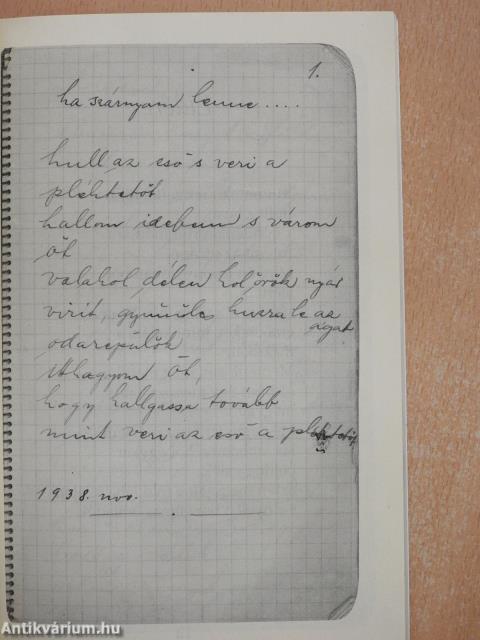 1.
ha szárnyam lenne....
hull az eső s veri a
pléhtetőt
hallom idebenn s várom
őt
valahol délen hol örök nyár
virit, gyümölcs huzza le az
ágat
odarepülök
itthagyom őt,
hogy hallgassa tovább
mint veri az eső a pléhtetőt
1938. nov.
Antikvárium.hu